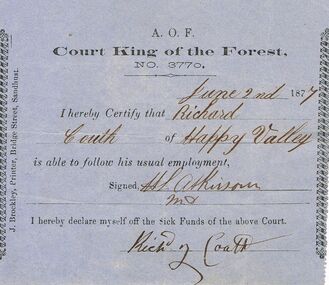 A. O. F.
Court King of the Forest,
NO. 3770.
June 2nd 1877
I hereby Certify that Richard
Couth of Happy Valley
is able to follow his usual employment,
Signed, H. L. Atkinson
I hereby declare myself off the Sick Funds of the above Court.
Richd Coath
J. Brockley, Printer, Bridge Street, Sandhurst.